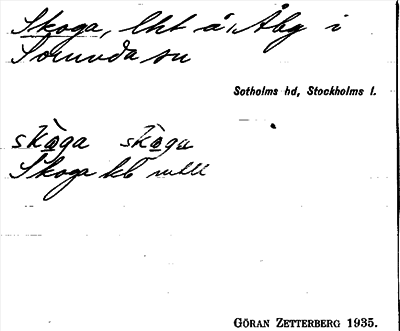 Skoga, lht å Åby i
Sorunda sn
Sotholms hd, Stockholms l.
skò̱ga skò̱ga
Skoga kb
GÖRAN ZETTERBERG 1935.